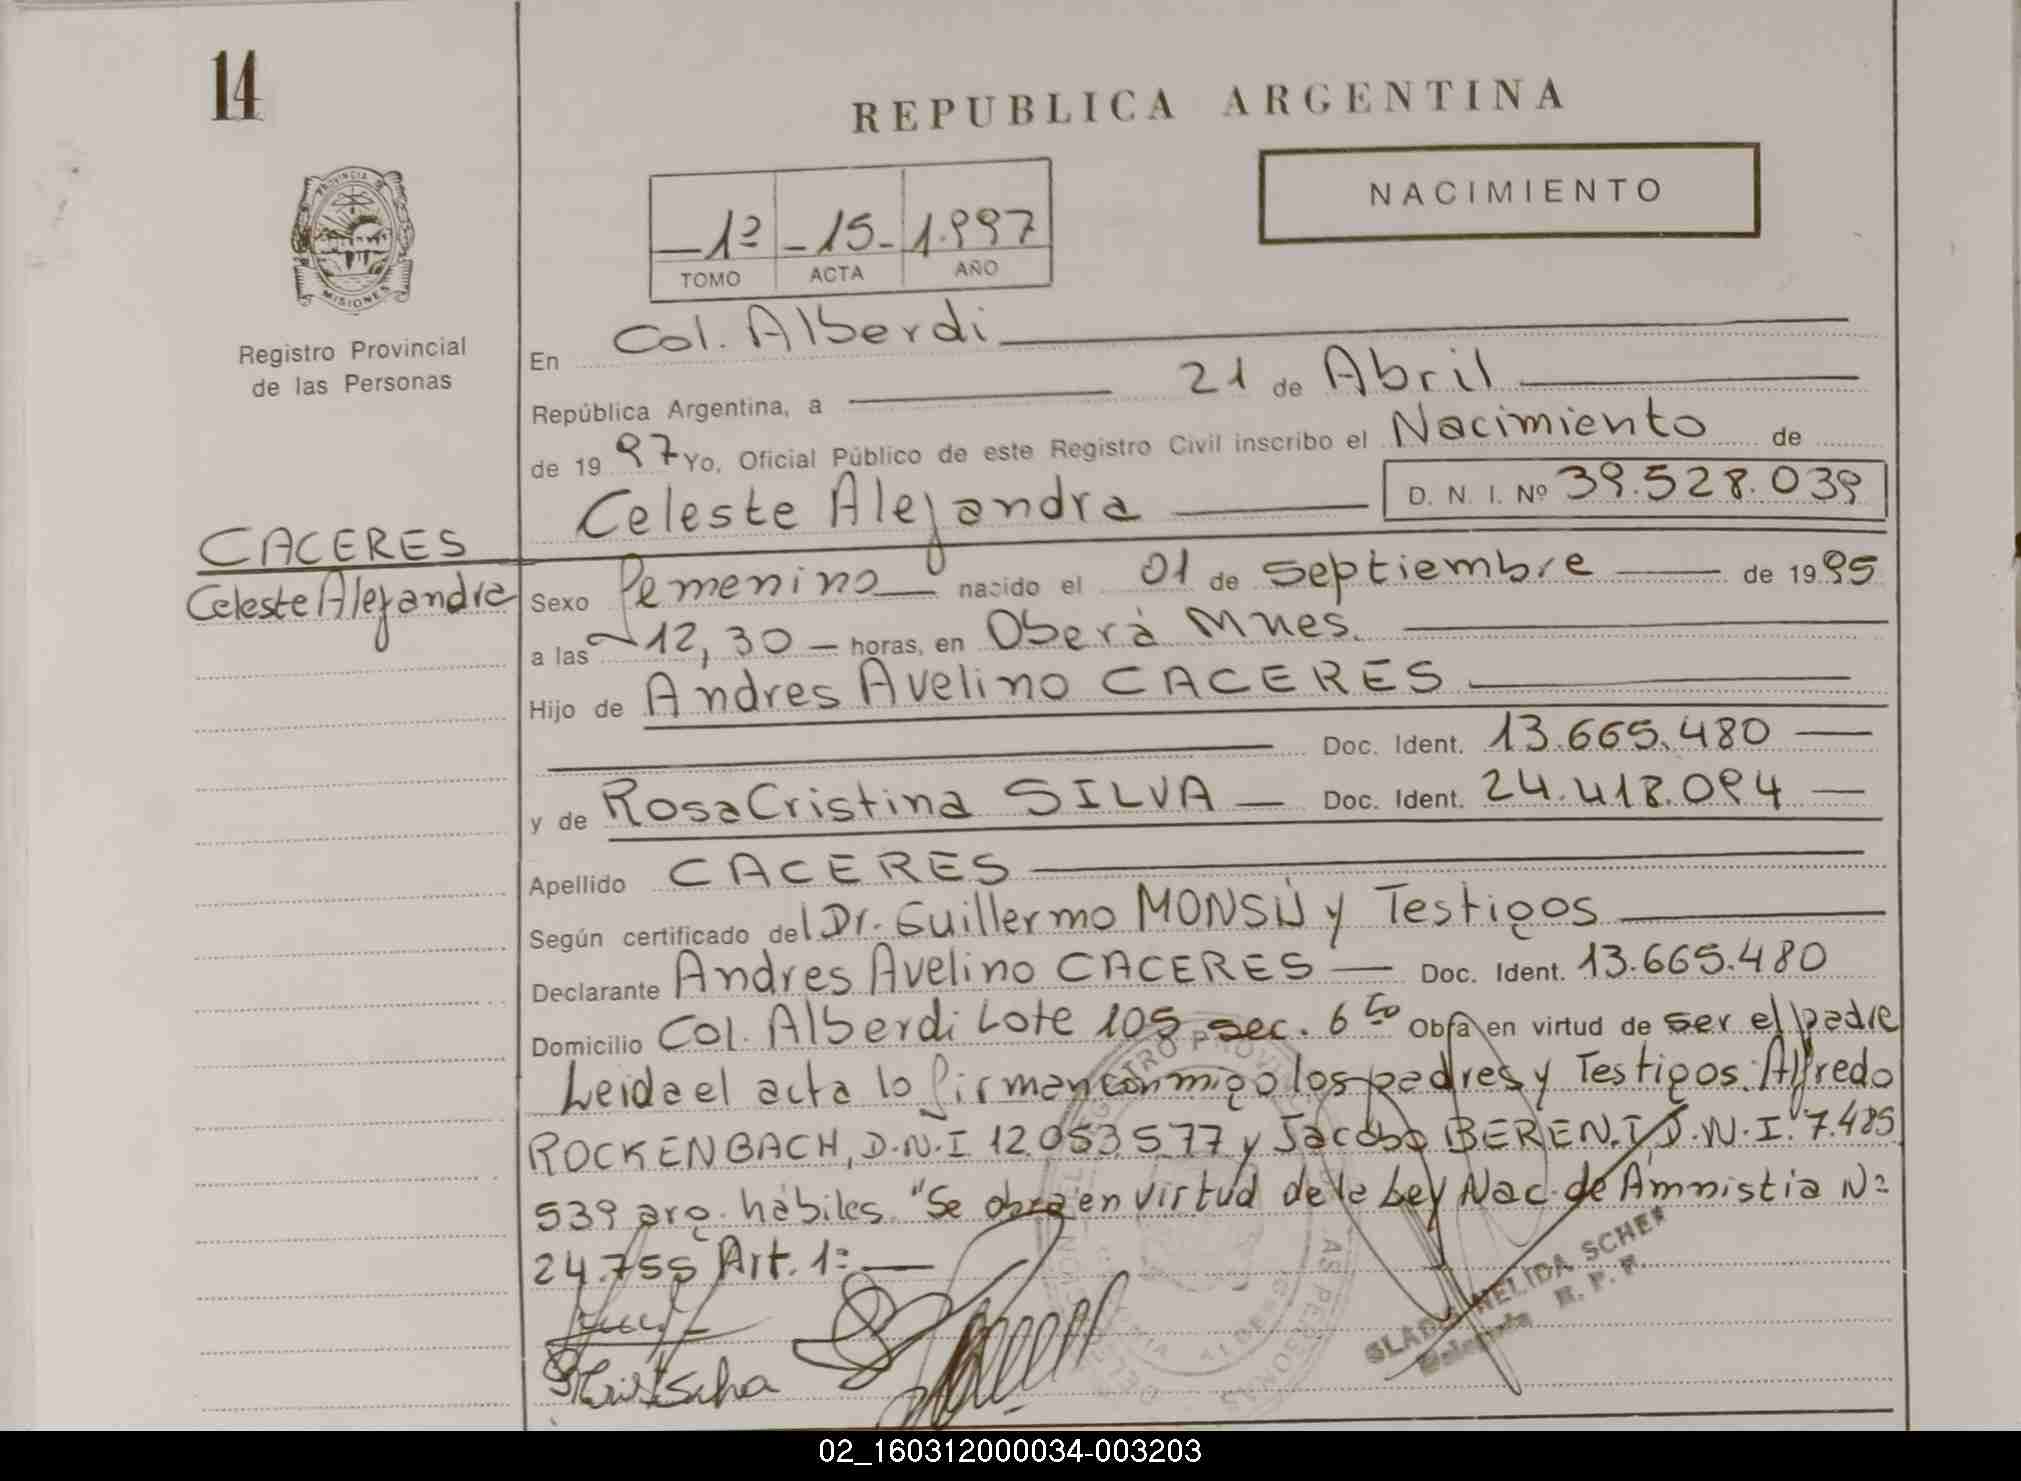 14
REPUBLICA ARGENTINA
NACIMIENTO
PROVINCIA DE
MISIONES
Registro Provincial
de las Personas
1º - 15 - 1.997
TOMO ACTA AÑO
En Col. Alberdi
República Argentina, a 21 de Abril
de 19 97 Yo, Oficial Público de este Registro Civil inscribo el Nacimiento de
Celeste Alejandra D. N. I. Nº 39.528.039
CACERES
Celeste Alejandra
Sexo Femenino nacido el 01 de septiembre de 19 95
a las 12,30 horas, en Oberá Mnes.
Hijo de Andres Avelino CACERES
Doc. Ident. 13.665.480
y de Rosa Cristina SILVA Doc. Ident. 24.418.094
Apellido CACERES
Según certificado del Dr. Guillermo MONSÚ y Testigos
Declarante Andres Avelino CACERES Doc. Ident. 13.665.480
Domicilio Col. Alberdi Lote 108 sec. 6 to Obra en virtud de ser el padre
Leida el acta lo firman conmigo los padres y Testigos: Alfredo
ROCKENBACH, D.N.I 12.053.577 y Jacobo BEREN.T, D.N.I. 7.485
539 arg. hábiles. "Se obra en virtud de la Ley Nac. de Amnistia Nº
24.755 Art. 1º
NELIDA SCHER
R. P. P.
02_160312000034-003203